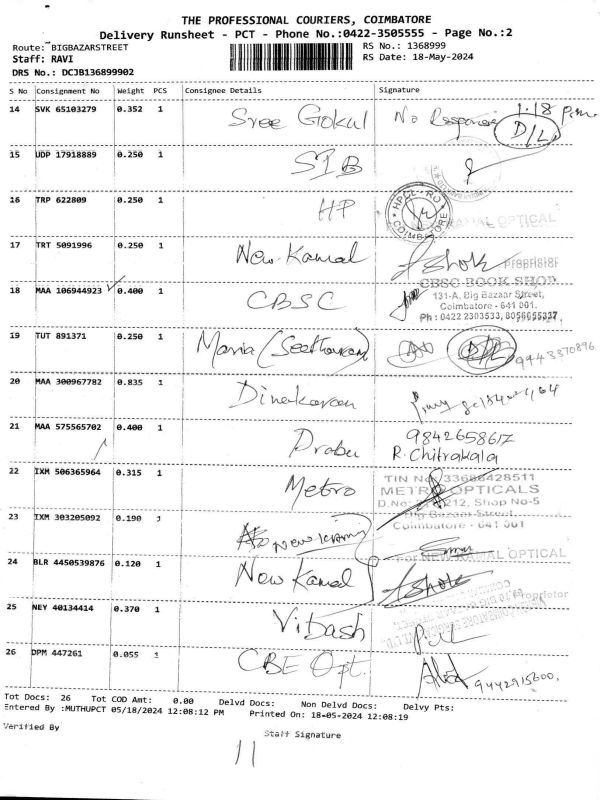 THE PROFESSIONAL COURIERS, COIMBATORE
Delivery Runsheet - PCT - Phone No.:0422-3505555 - Page No.:2
Route: BIGBAZARSTREET RS No.: 1368999
Staff: RAVI RS Date: 18-May-2024
DRS No.: DCJB136899902
S No Consignment No Weight PCS Consignee Details Signature
14 SVK 65103279 0.352 1 Sree Gokul No Response 1.18 p.m. D/L
15 UDP 17918889 0.250 1 SIB
16 TRP 622809 0.250 1 HP HPCL-RO COIMBATORE
KAMAL OPTICAL
17 TRT 5091996 0.250 1 New Kamal Ashok Proprietor
18 MAA 106944923 0.400 1 CBSC CBSC BOOK SHOP
131-A, Big Bazaar Street,
Coimbatore - 641 001.
Ph : 0422 2303533, 8056655337,
19 TUT 891371 0.250 1 D/L 9443370896
20 MAA 300967782 0.835 1 Dinakaran
21 MAA 575565702 0.400 1 Prabu 9842658617
R. Chitrakala
22 IXM 506365964 0.315 1 Metro TIN No
METRO OPTICALS
Shop No-5
23 IXM 303205092 0.190 1 New Big Bazaar Street
Coimbatore - 641 001
For NEW KAMAL OPTICAL
24 BLR 4450539876 0.120 1 New Kamal Ashok Proprietor
25 NEY 40134414 0.370 1 Vibash
26 DPM 447261 0.055 1 CBE Opt. 9442915600,
Tot Docs: 26 Tot COD Amt: 0.00 Delvd Docs: Non Delvd Docs: Delvy Pts:
Entered By :MUTHUPCT 05/18/2024 12:08:12 PM Printed On: 18-05-2024 12:08:19
Verified By Staff Signature
11